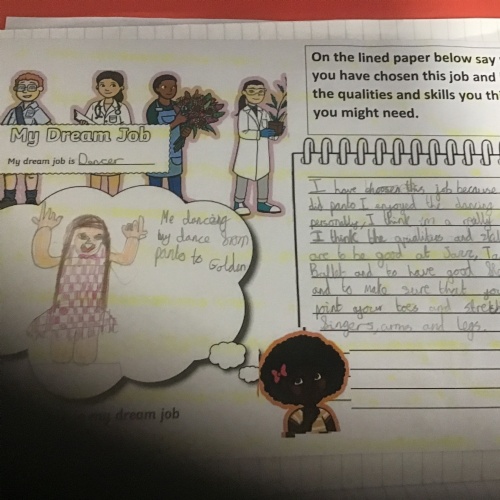 My Dream Job
My dream job is Dancer
Me dancing
my dance from
panto to Golden
my dream job
On the lined paper below say
you have chosen this job and
the qualities and skills you thi
you might need.
I have choosen this job because
did panto I enjoyed the dancing
personally, I think i'm a really
I think the qualities and skil
are to be good at Jazz, Ta
Ballet and to have good
and to make sure that you
pint your toes and stretch
fingers, arms and legs.